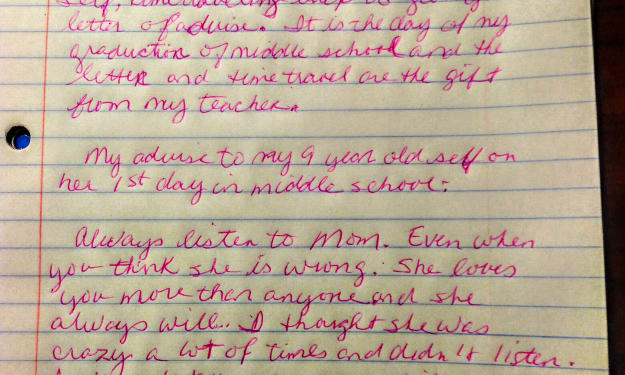 self, time traveling back to
letter of advise. It is the day of my
graduction of middle school and the
letter and time travel are the gift
from my teacher.
My advise to my 9 year old self on
her 1st day in middle school:
Always listen to Mom. Even when
you think she is wrong. She loves
you more than anyone and she
always will. I thought she was
crazy a lot of times and didn't listen.